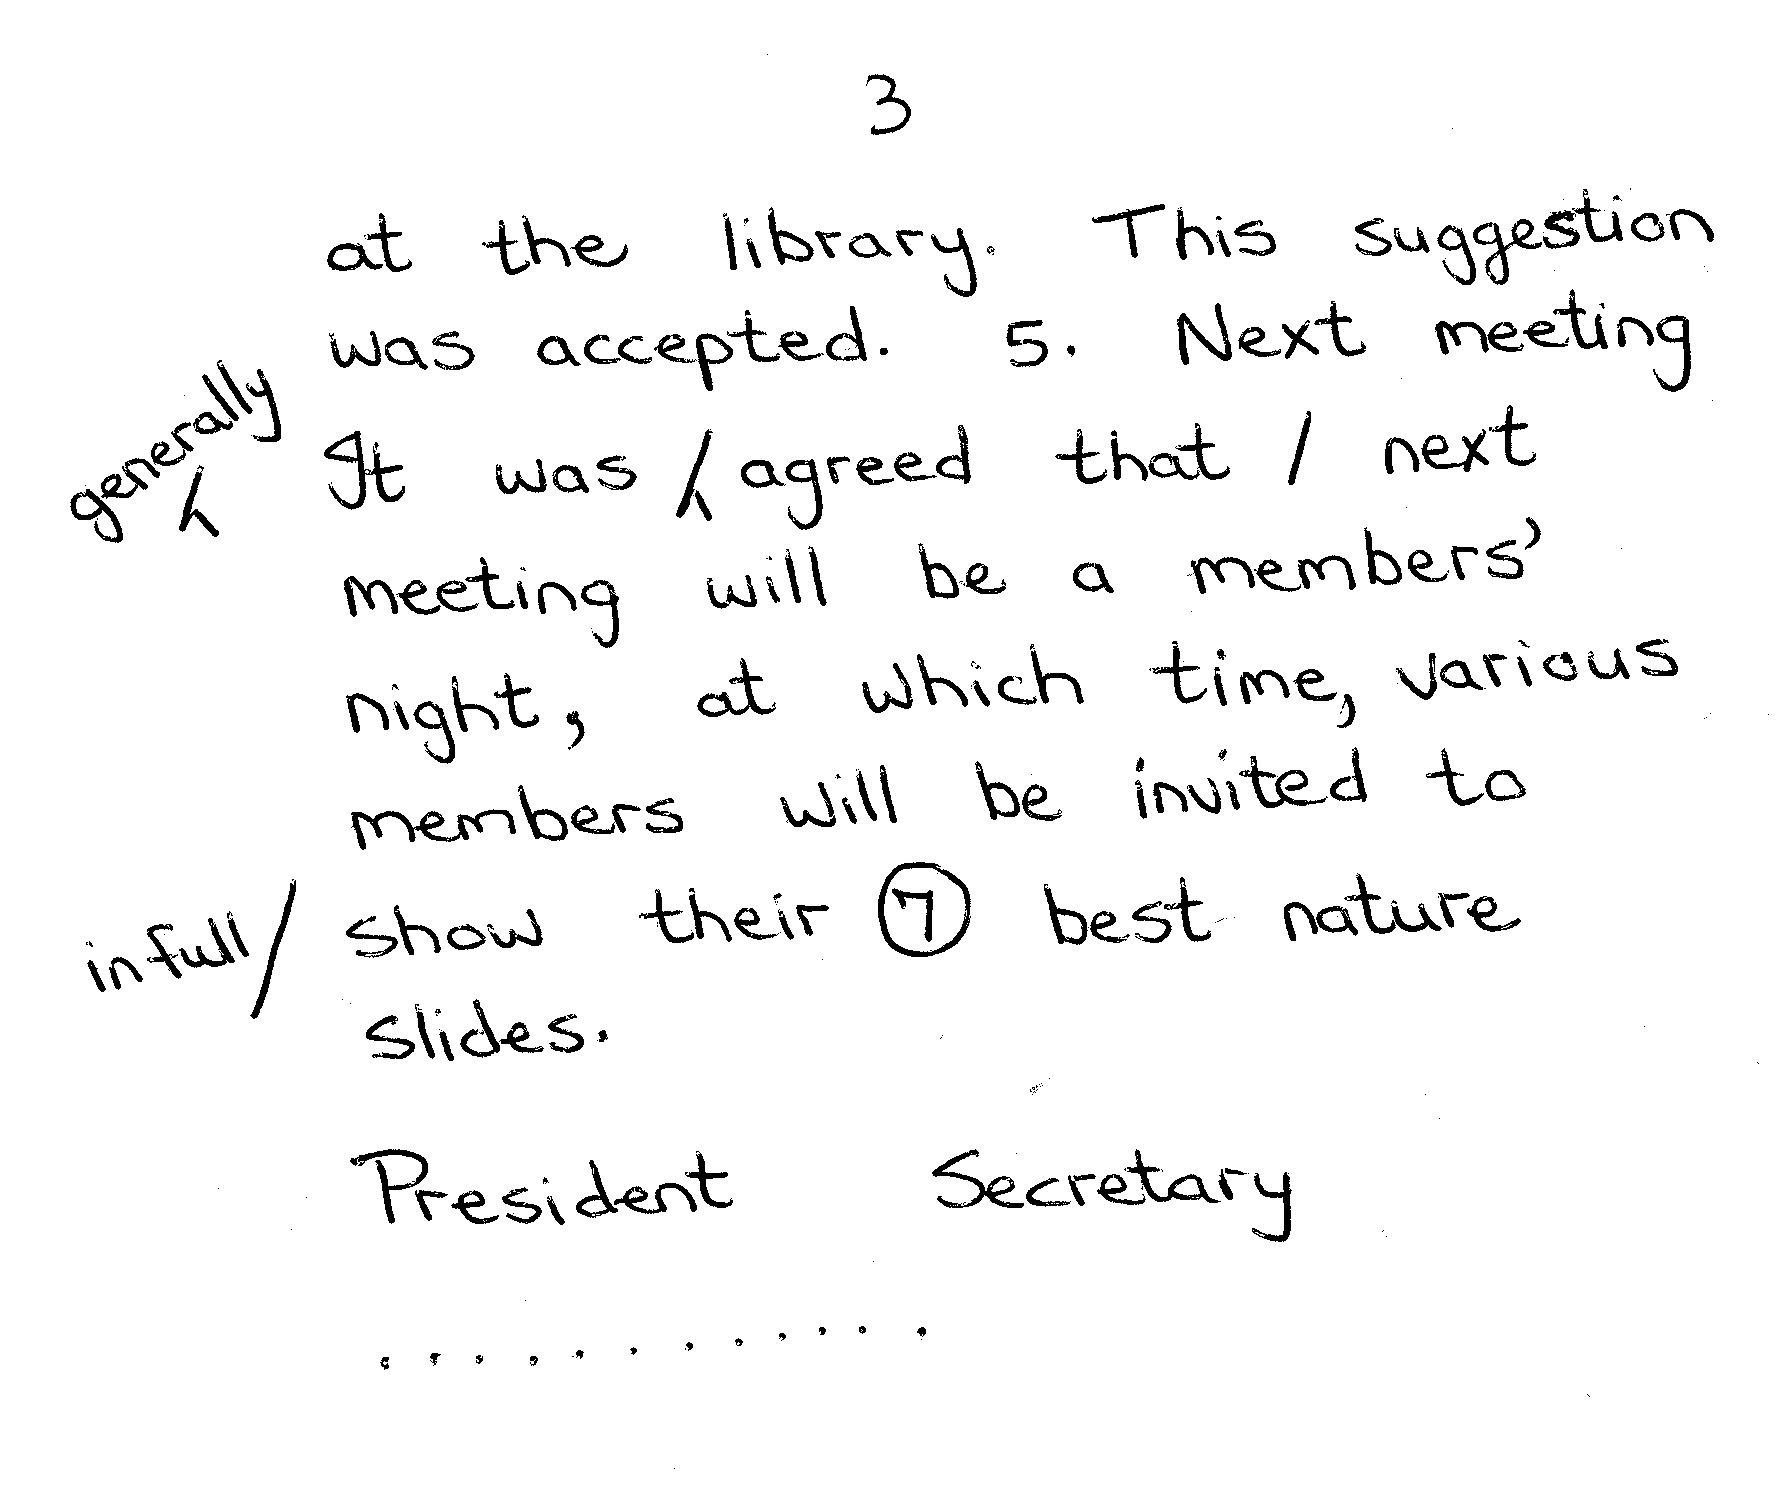 3
at the library. This suggestion
was accepted. 5. Next meeting
generally
It was / agreed that / next
meeting will be a members'
night, at which time, various
members will be invited to
in full / show their 7 best nature
slides.
President Secretary
. . . . . . . . . . .